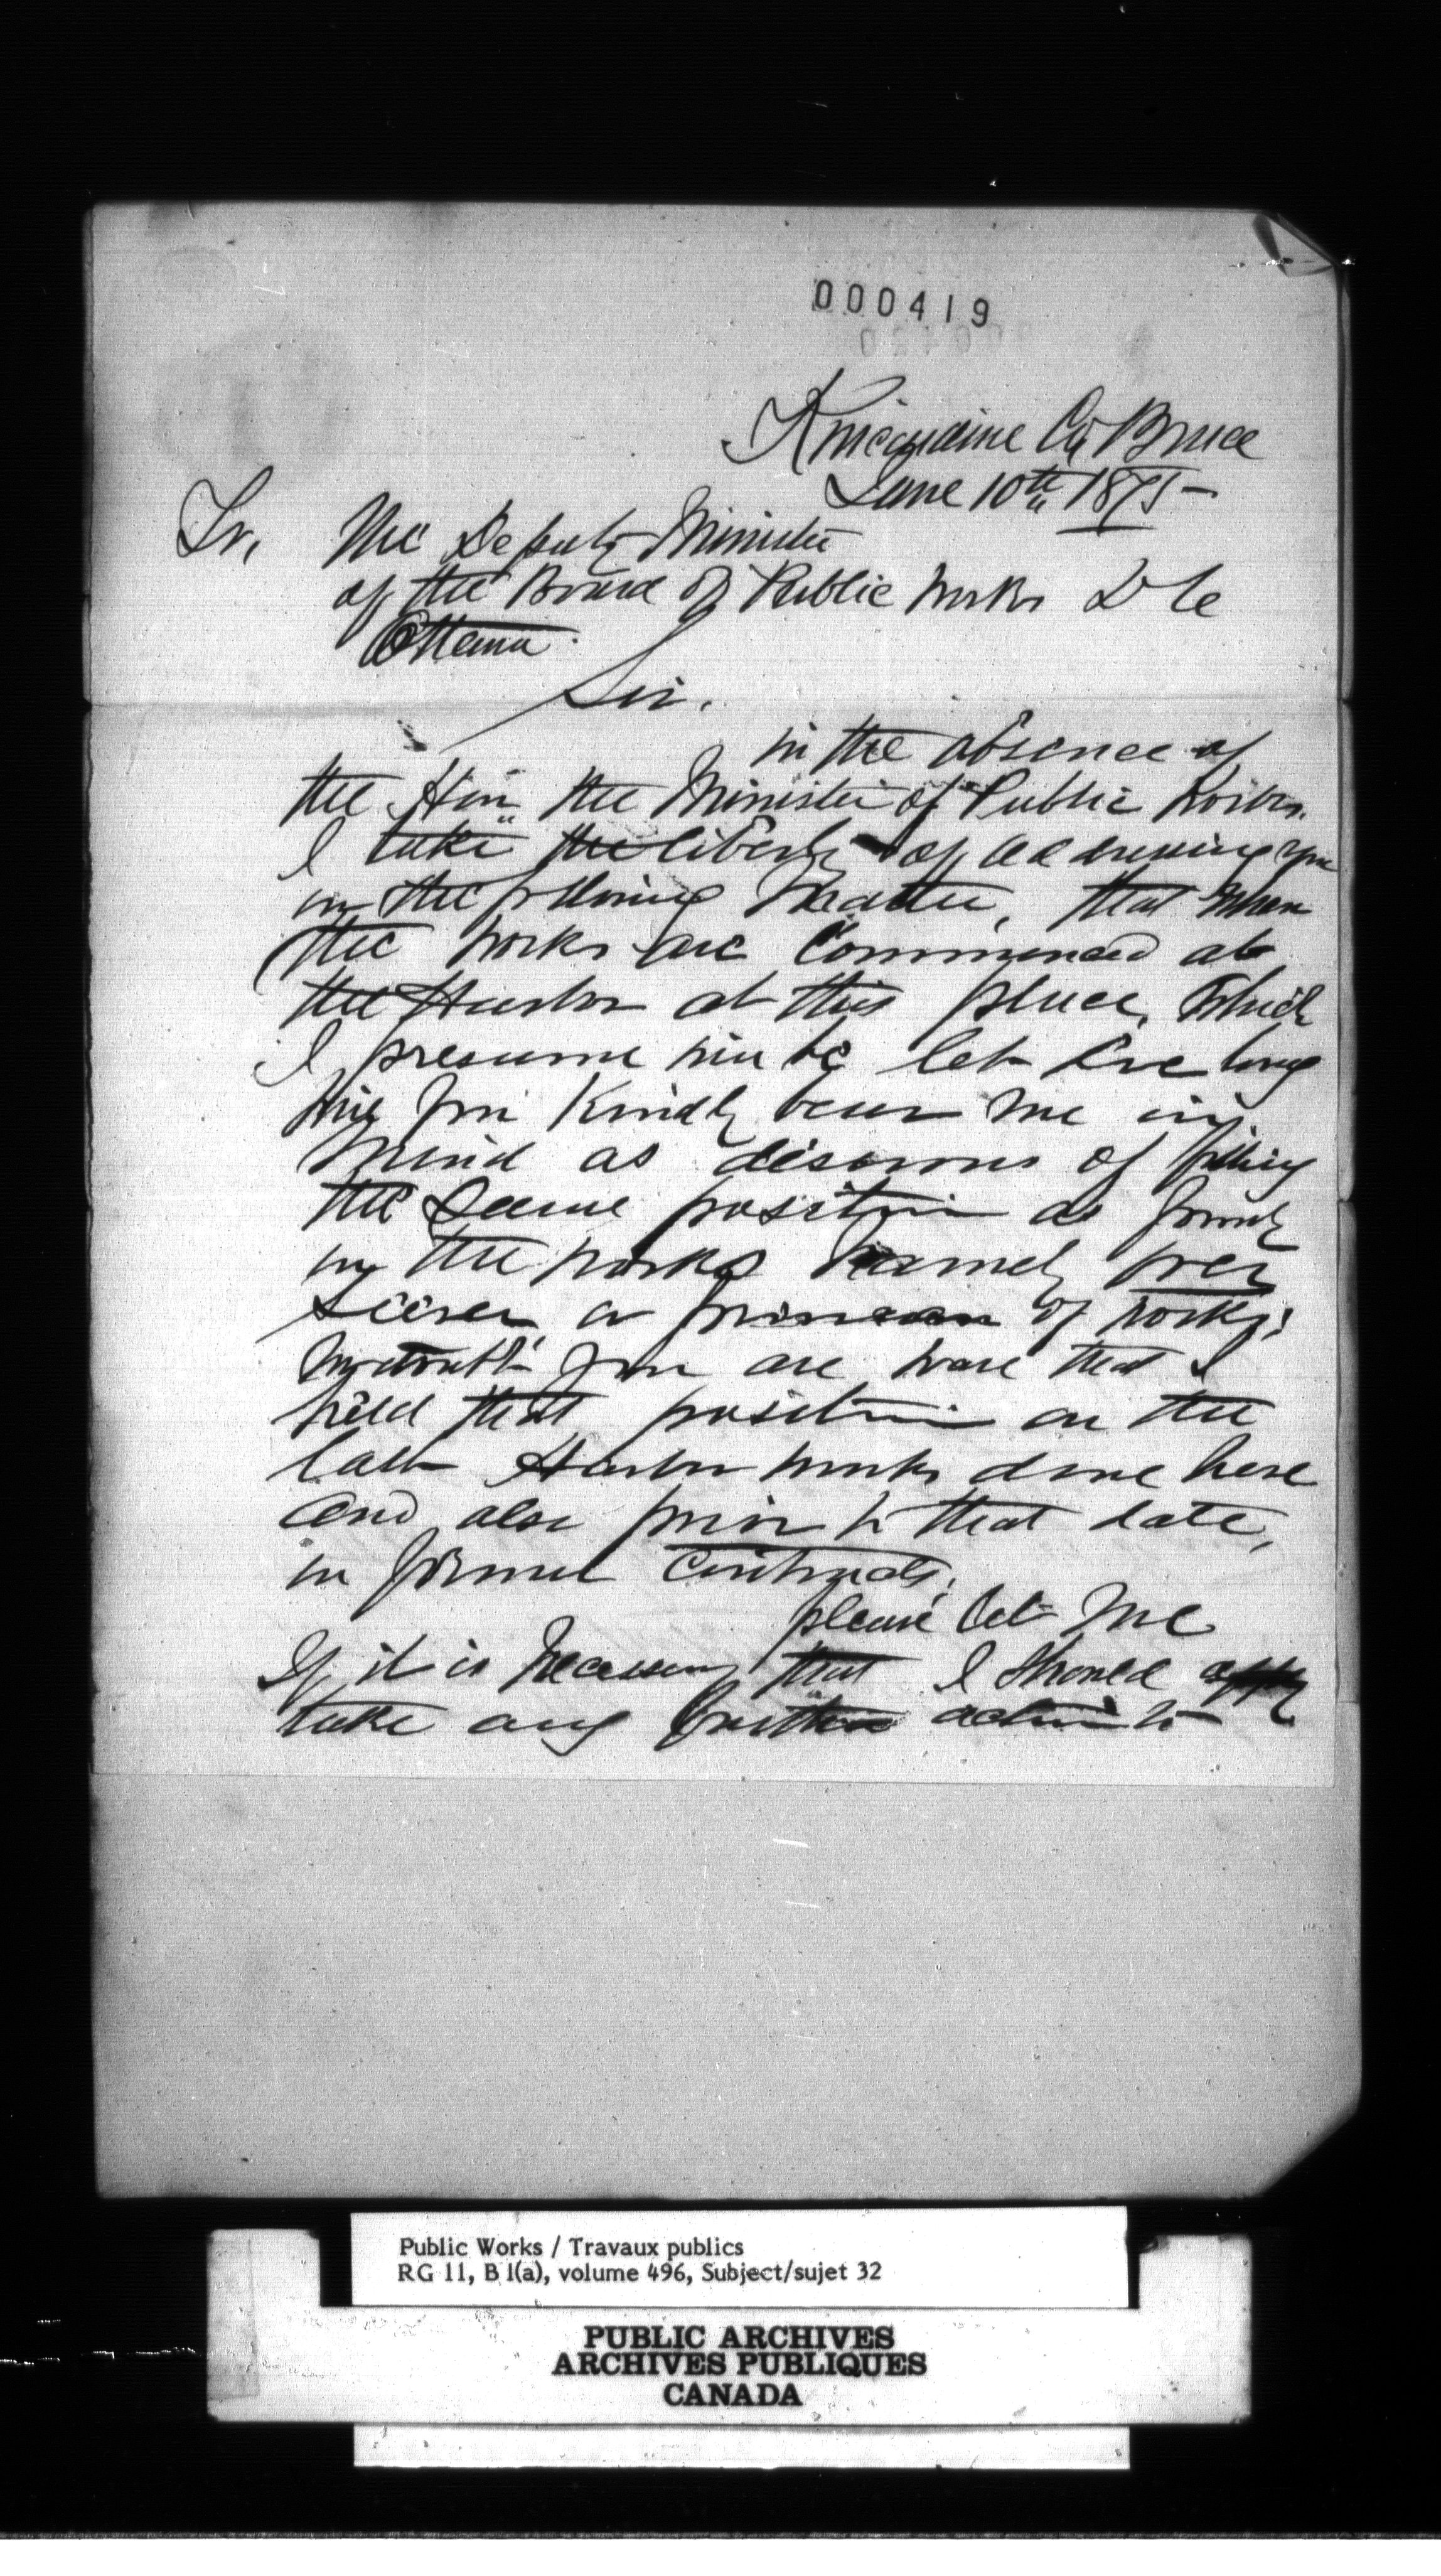 000419
Kincardine Co Bruce
June 10th 1875
To, The Deputy Minister
of the Board of Public Works
Ottawa
Sir,
in the absence of
the Hon the Minister of Public Works.
I take the liberty of addressing you
on the following Matter, that when
the works are Commenced at
the Harbor at this place, which
I presume will be let ere long
will you Kindly bear me in
Mind as desirous of filling
the Same position as formerly
on the works Namely over
Seeer or foreman of works,
No doubt you are ware that I
held that position on the
last Harbor works done here
and also prior to that date,
in former Contracts,
please let me
If it is Necessary that I should apply
take any further action to
Public Works / Travaux publics
RG 11, B 1(a), volume 496, Subject/sujet 32
PUBLIC ARCHIVES
ARCHIVES PUBLIQUES
CANADA